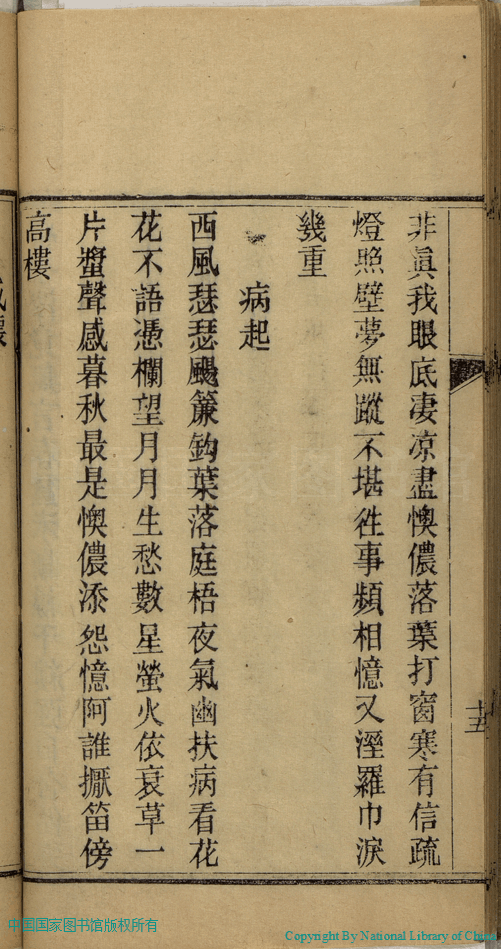 十五
非眞我眼底淒凉盡懊儂落葉打窗寒有信疏
燈照壁夢無蹤不堪徃事頻相憶又溼羅巾淚
幾重
病起
西風瑟瑟颺簾鈎葉落庭梧夜氣幽扶病看花
花不語憑欄望月月生愁數星螢火依衰草一
片蛩聲感暮秋最是懊儂添怨憶阿誰擫笛傍
高樓
中国国家图书馆版权所有
Copyright By National Library of China